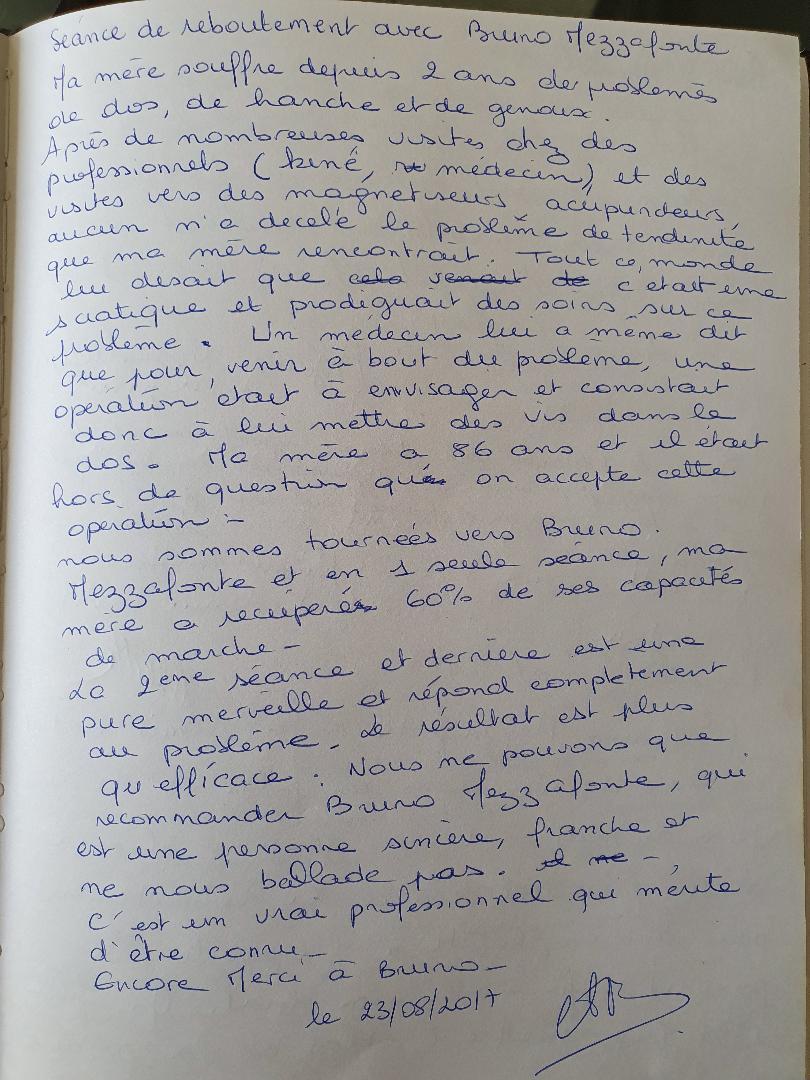 Séance de reboutement avec Bruno Mezzafonte
Ma mère souffre depuis 2 ans de problèmes
de dos, de hanche et de genoux.
Après de nombreuses visites chez des
professionnels (kiné, médecin) et des
visites vers des magnetiseurs acupuncteurs,
aucun n'a decelé le problème de tendinite
que ma mère rencontrait. Tout ce monde
lui disait que cela venait de c etait une
sciatique et prodiguait des soins sur ce
problème. Un médecin lui a même dit
que pour venir à bout du problème, une
opération etait à envisager et consistait
donc à lui mettre des vis dans le
dos. Ma mère a 86 ans et il était
hors de question qu on accepte cette
operation -
nous sommes tournées vers Bruno.
Mezzafonte et en 1 seule séance, ma
mère a recuperé 60% de ses capacités
de marche -
La 2eme séance et dernière est une
pure merveille et répond completement
au problème. Le résultat est plus
qu efficace. Nous ne pouvons que
recommander Bruno Mezzafonte, qui
est une personne sincère, franche et
ne nous ballade pas. il ne -
C'est un vrai professionnel qui mérite
d'être connu -
Encore Merci à Bruno -
le 23/08/2017